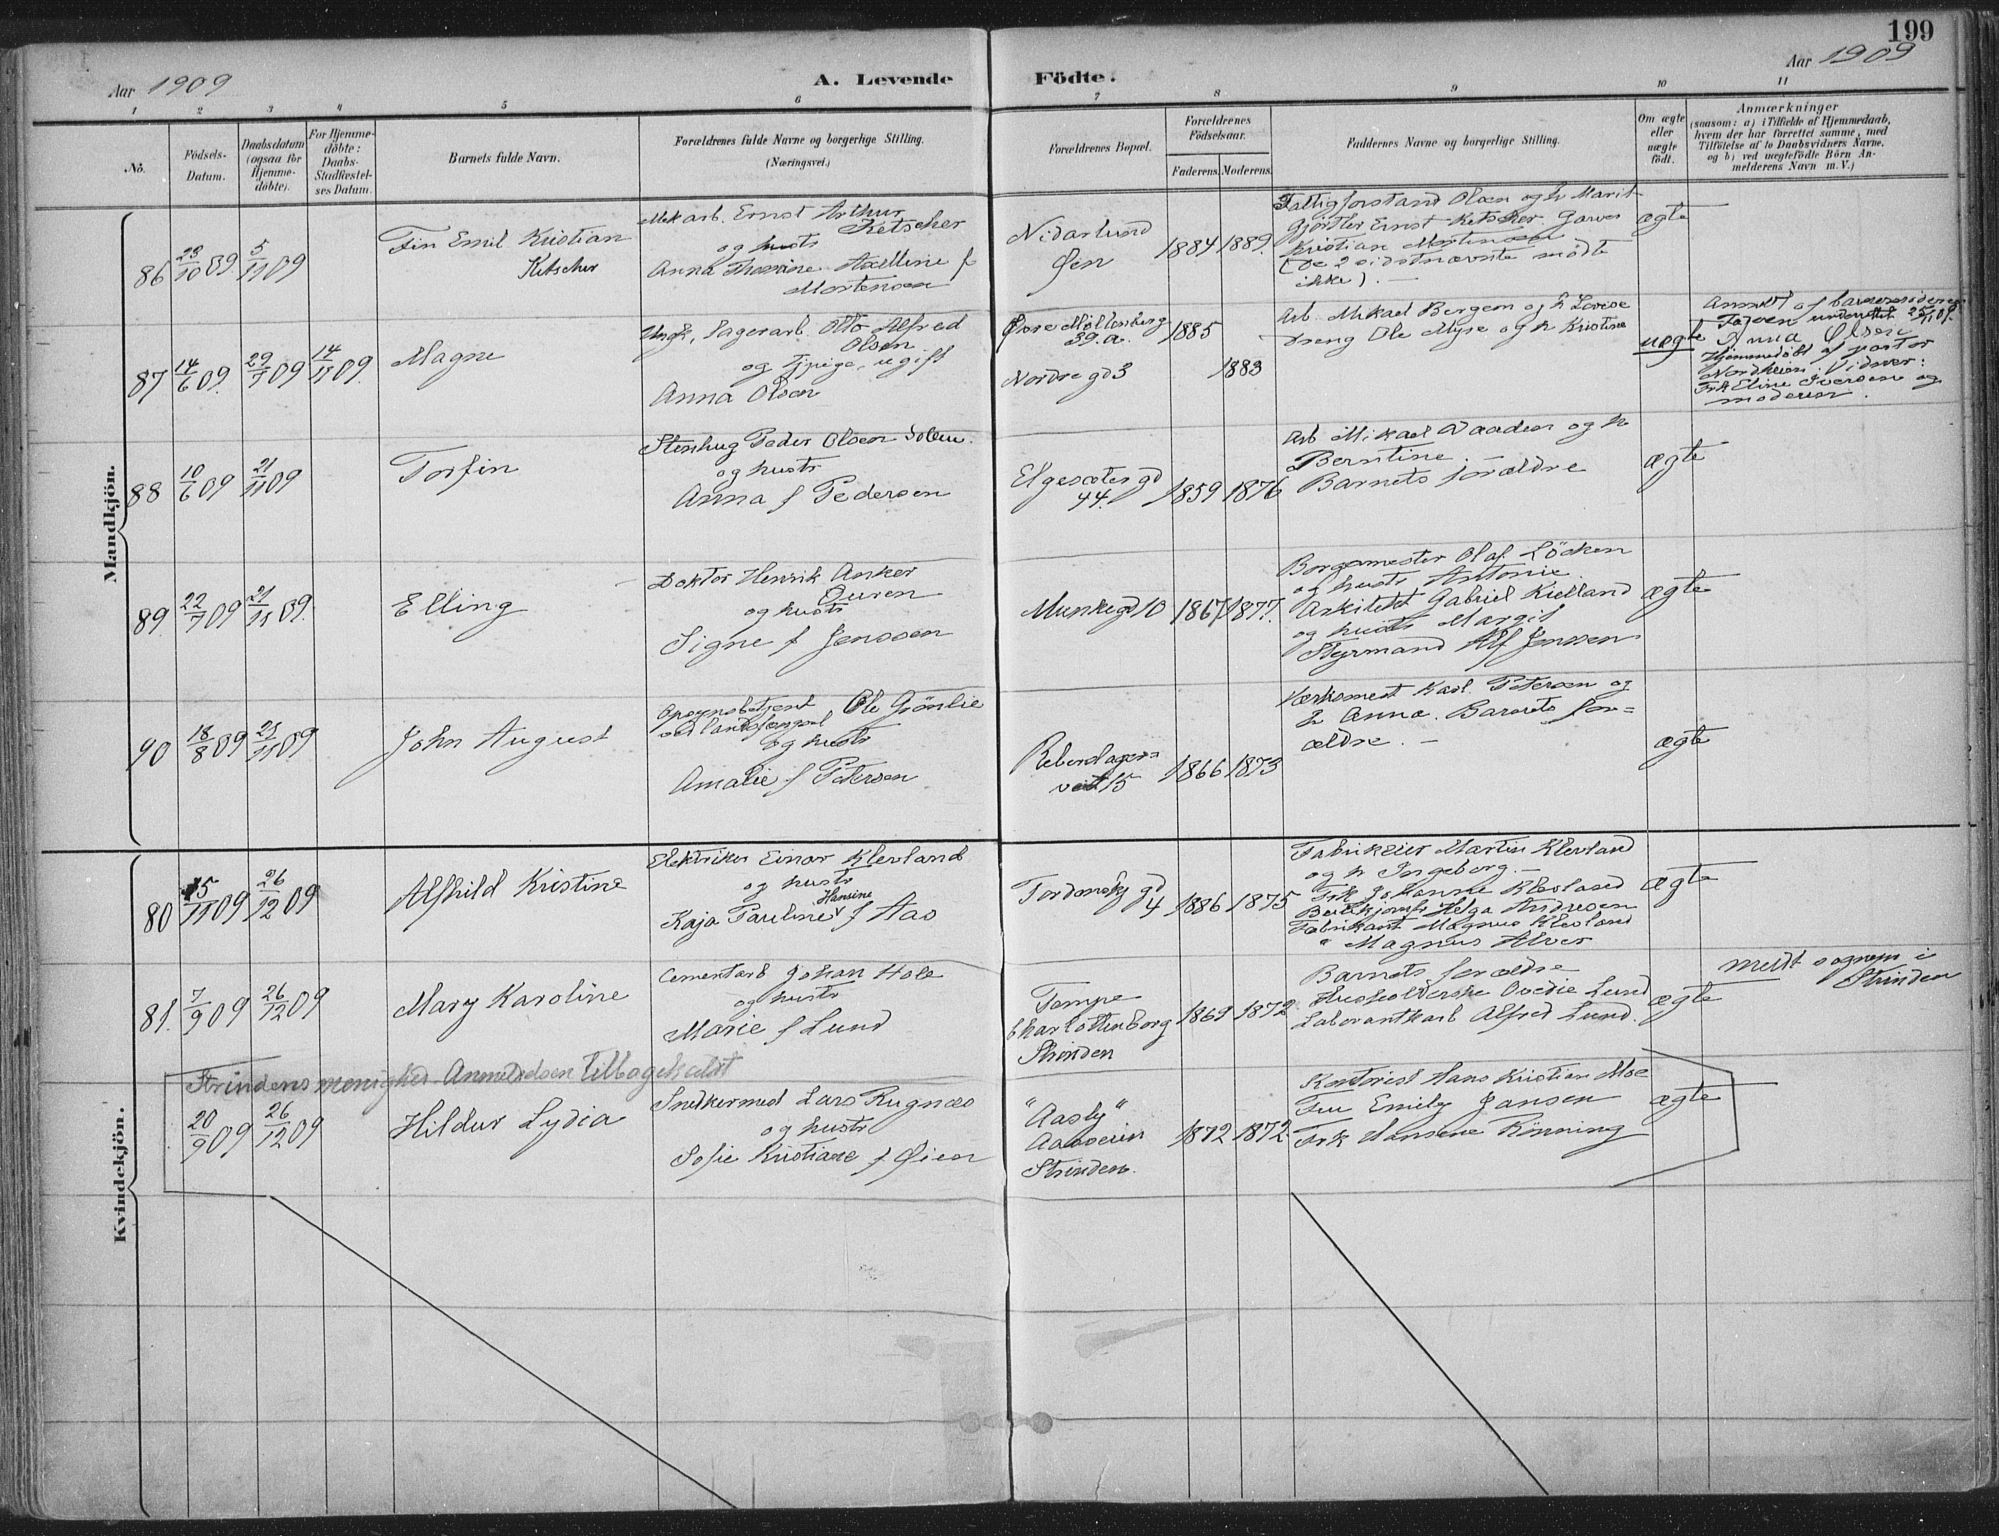 199
Aar 1909
A. Levende Födte.
Aar 1909
1 2 3 4 5 6 7 8 9 10 11
No.
Födsels-Datum.
Daabsdatum (ogsaa for Hjemme-döbte).
For Hjemme-döbte: Daabs-Stadfæstel-ses Datum.
Barnets fulde Navn.
Forældrenes fulde Navne og borgerlige Stilling.
(Næringsvei.)
Forældrenes Bopæl.
Forældrenes Födselsaar.
Faderens. Moderens.
Faddernes Navne og borgerlige Stilling.
Om ægte eller uægte födt.
Anmærkninger
(saasom: a) i Tilfælde af Hjemmedaab,
hvem der har forrettet samme, med
Tilföielse af to Daabsvidners Navne.
og b) ved uægtefödte Börn An-
melderens Navn m. V.)
Mandkjön.
86 23/10 09 5/11 09
Fin Emil Kristian
Ketscher
Mek arb. Ernst Arthur
Ketscher
og hustr
Anna Thomine Axelline f
Mortensen
Nidarlund
Øen
1884 1889.
Fattigforstand Olsen og h Marit
Gjørtler Ernst Ketscher Garver
Kristian Mortensen
(De 2 sidstnævnte mødte
ikke). -
ægte
87 14/6 09. 29/7 09 14/11 09.
Magne
Ungk, Lagerarb. Otto Alfred
Olsen
og Tjpige, ugift
Anna Olsen
Øvre Møllenberg
39.a.
Nordre gd 3
1885
1883
Arb. Mikael Bergem og h Lovise
Dreng Ole Myse og h Kristine
uægte
Anmeldt af barnemoderen
Faderen underrettet 25/11 09.
Anna Olsen
Hjemmedøbt af pastor
Nordheim. Vidner:
Frk Eline Iversen og
moderen.
88 10/6 09 21/11 09
Torfin
Stenhug Peder Olsen Solem.
og hustr
Anna f Pedersen
Elgesæter gd
44.
1859 1876
Arb Mikael Vaaden og h
Berntine. -
Barnets forældre
ægte
89. 22/7 09 21/11 09.
Elling
Doktor Henrik Anker
Duren
og hustr
Signe f Jenssen
Munkegd 10
1867 1877.
Borgemester Olaf Löcken
og hustr Antonie
Arkitekt Gabriel Kielland
og hustr Margit
Styrmand Alf Jenssen
ægte
90 18/8 09 25/11 09
John August
Opsynsbetjent Ole Grönlie
ved landsfængsel
og hustr
Amalie f Petersen
Rebslager=
veit 15
1866 1873
Værksmest Karl Petersen og
h Anna. Barnets for=
ældre. -
ægte
Kvindekjön.
80 15/11 09 26/12 09
Alfhild Kristine
Elektriker Einar Klevland
og hustr
Hansine
Kaja Pauline f Aas
Tordenskj gd
4
1886 1875
Fabrikeier Martin Klevland
og h Ingeborg. -
Frk Johanne Klevland
Helga Andresen
Fabrikant Magnus Klevland
" Magnus Alver
ægte
81. 7/9 09 26/12 09
Mary Karoline
Cementarb Johan Hole
og hustr
Marie f Lund
Tempe
Charlottenborg
Strinden
1869 1872
Barnets forældre
Husholderske Ovedie Lund
Laborantkarl Alfred Lund.
ægte
Meldt sognepr i
Strinden
Strindens menighed. Anmeldelsen tilbagekaldt
20/9 09 26/12 09
Hildur Lydia
Snekkermed Lars Rugnæs
og hustr
Sofie Kristiane f Øien
"Aasly"
Strinden.
1872 1872
Kontorist Hans Kristian Moe
Fru Emily Jansen
Frk Hansene Rönning
ægte